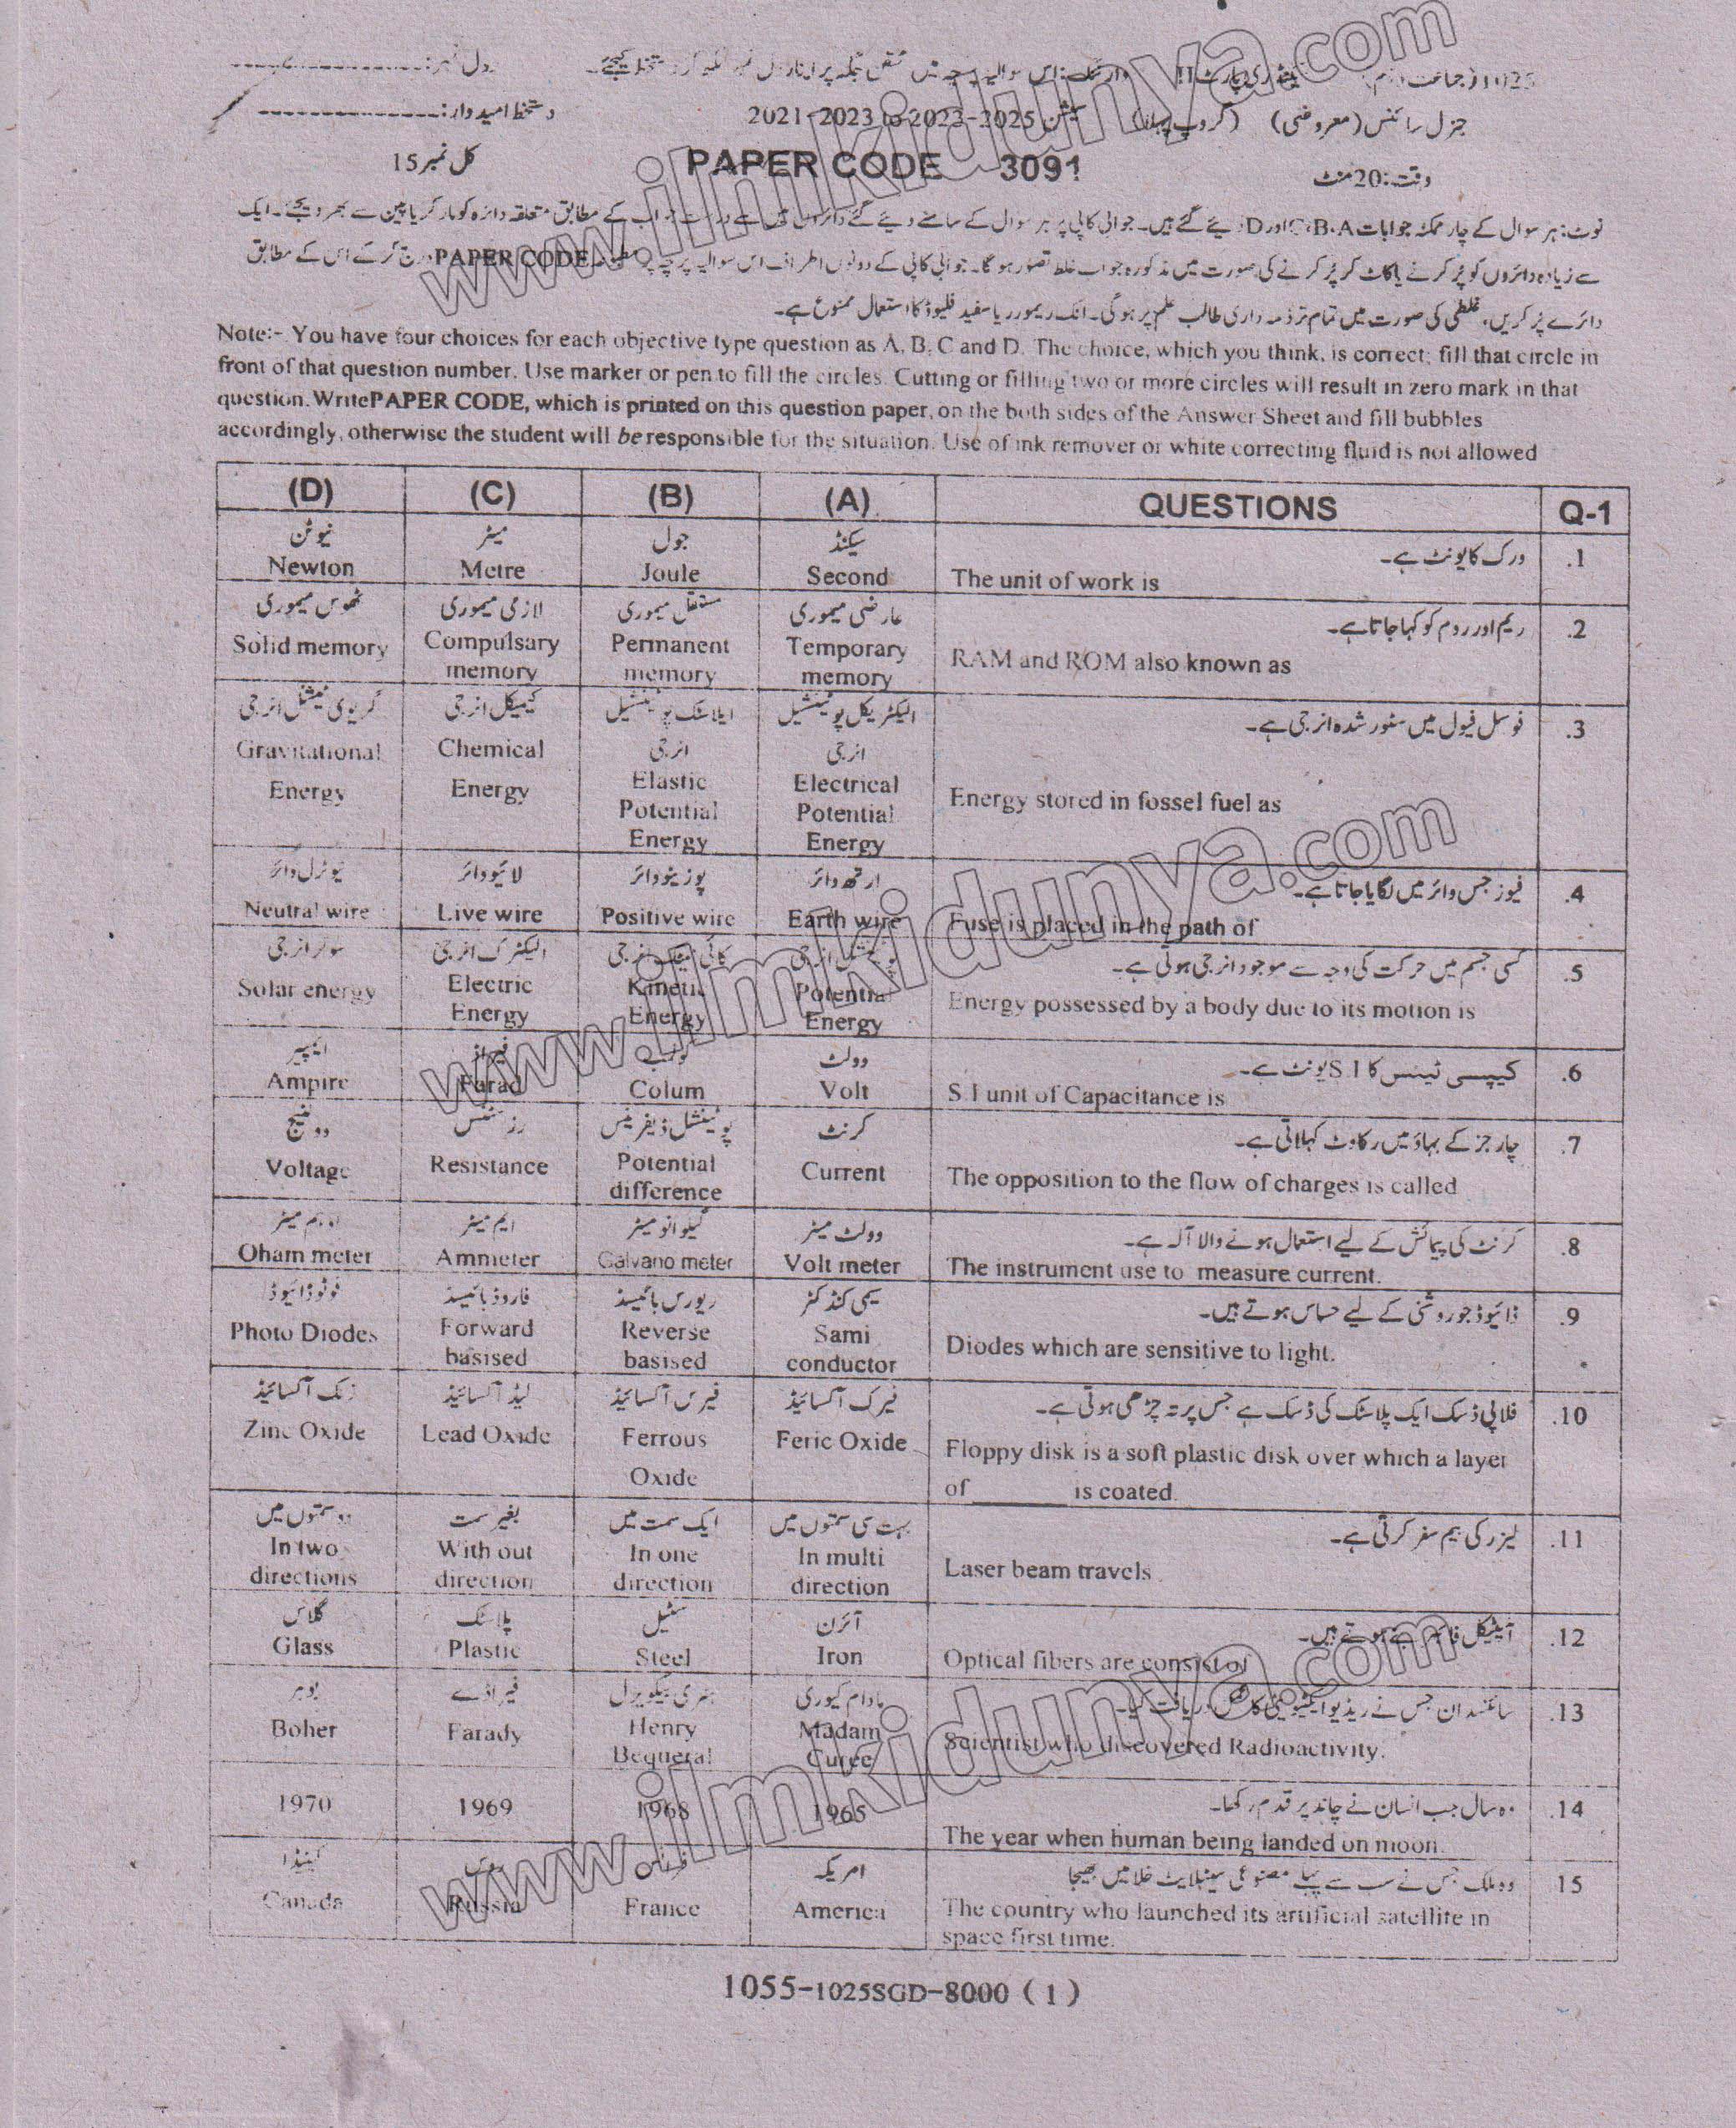 رول نمبر:
دستخط امیدوار:
جنرل سائنس (معروضی) (گروپ پہلا) سیشن 2021-2023 to 2023-2025
وقت:20منٹ PAPER CODE 3091 کل نمبر15
نوٹ: ہر سوال کے چار ممکنہ جوابات A،B،C اور D دیئے گئے ہیں۔ جوابی کاپی پر ہر سوال کے سامنے دیئے گئے دائروں میں سے درست جواب کے مطابق متعلقہ دائرہ کو مارکر یا پین سے بھر دیجئے۔ ایک
سے زیادہ دائروں کو پُر کرنے یا کاٹ کر پُر کرنے کی صورت میں مذکورہ جواب غلط تصور ہو گا۔ جوابی کاپی کے دونوں اطراف اس سوالیہ پرچہ پر مطبوعہ PAPER CODE درج کر کے اس کے مطابق
دائرے پُر کریں، غلطی کی صورت میں تمام تر ذمہ داری طالب علم پر ہو گی۔ انک ریمورر یا سفید فلیوڈ کا استعمال ممنوع ہے۔
Note:- You have four choices for each objective type question as A, B, C and D. The choice, which you think, is correct; fill that circle in
front of that question number. Use marker or pen to fill the circles. Cutting or filling two or more circles will result in zero mark in that
question. Write PAPER CODE, which is printed on this question paper, on the both sides of the Answer Sheet and fill bubbles
accordingly, otherwise the student will be responsible for the situation. Use of ink remover or white correcting fluid is not allowed
(D) (C) (B) (A) QUESTIONS Q-1
نیوٹن میٹر جول سیکنڈ ورک کا یونٹ ہے۔ .1
Newton Metre Joule Second The unit of work is
ٹھوس میموری لازمی میموری مستقل میموری عارضی میموری ریم اور روم کو کہا جاتا ہے۔ .2
Solid memory Compulsary memory Permanent memory Temporary memory RAM and ROM also known as
گریوی ٹیشنل انرجی کیمیکل انرجی ایلاسٹک پوٹینشیل انرجی الیکٹریکل پوٹینشیل انرجی فوسل فیول میں سٹور شدہ انرجی ہے۔ .3
Gravitational Energy Chemical Energy Elastic Potential Energy Electrical Potential Energy Energy stored in fossel fuel as
نیوٹرل وائر لائیو وائر پوزیٹو وائر ارتھ وائر فیوز جس وائر میں لگایا جاتا ہے۔ .4
Neutral wire Live wire Positive wire Earth wire Fuse is placed in the path of
سولر انرجی الیکٹرک انرجی کائی نیٹک انرجی پوٹینشل انرجی کسی جسم میں حرکت کی وجہ سے موجود انرجی ہوتی ہے۔ .5
Solar energy Electric Energy Kinetic Energy Potential Energy Energy possessed by a body due to its motion is
ایمپیر فیراڈ کولمب وولٹ کیپسی ٹینس کا S.I یونٹ ہے۔ .6
Ampire Farad Colum Volt S.I unit of Capacitance is
وولٹیج رزسٹنس پوٹینشل ڈیفرینس کرنٹ چارجز کے بہاؤ میں رکاوٹ کہلاتی ہے۔ .7
Voltage Resistance Potential difference Current The opposition to the flow of charges is called
اوہم میٹر ایم میٹر گیلوانو میٹر وولٹ میٹر کرنٹ کی پیمائش کے لیے استعمال ہونے والا آلہ ہے۔ .8
Oham meter Ammeter Galvano meter Volt meter The instrument use to measure current.
فوٹو ڈائیوڈ فارورڈ بائیسڈ ریورس بائیسڈ سیمی کنڈکٹر ڈائیوڈ جو روشنی کے لیے حساس ہوتے ہیں۔ .9
Photo Diodes Forward basised Reverse basised Sami conductor Diodes which are sensitive to light.
زنک آکسائیڈ لیڈ آکسائیڈ فیرس آکسائیڈ فیرک آکسائیڈ فلاپی ڈسک ایک پلاسٹک کی ڈسک ہے جس پر تہ چڑھی ہوتی ہے۔ .10
Zinc Oxide Lead Oxide Ferrous Oxide Feric Oxide Floppy disk is a soft plastic disk over which a layer
of ________ is coated.
دو سمتوں میں بغیر سمت ایک سمت میں بہت سی سمتوں میں لیزر کی بیم سفر کرتی ہے۔ .11
In two directions With out direction In one direction In multi direction Laser beam travels
گلاس پلاسٹک سٹیل آئرن آپٹیکل فائبر بنے ہوتے ہیں۔ .12
Glass Plastic Steel Iron Optical fibers are consist of
بوہر فیراڈے ہنری بیکیورل مادام کیوری سائنسدان جس نے ریڈیو ایکٹیویٹی کا دریافت کیا۔ .13
Boher Farady Henry Bequeral Madam Curee Scientist who discovered Radioactivity.
1970 1969 1968 1965 وہ سال جب انسان نے چاند پر قدم رکھا۔ .14
The year when human being landed on moon.
کینیڈا روس فرانس امریکہ وہ ملک جس نے سب سے پہلے مصنوعی سیٹلائیٹ خلا میں بھیجا 15
Canada Russia France America The country who launched its artificial satellite in
space first time.
1055-1025SGD-8000 (1)
www.ilmkidunya.com
www.ilmkidunya.com
www.ilmkidunya.com